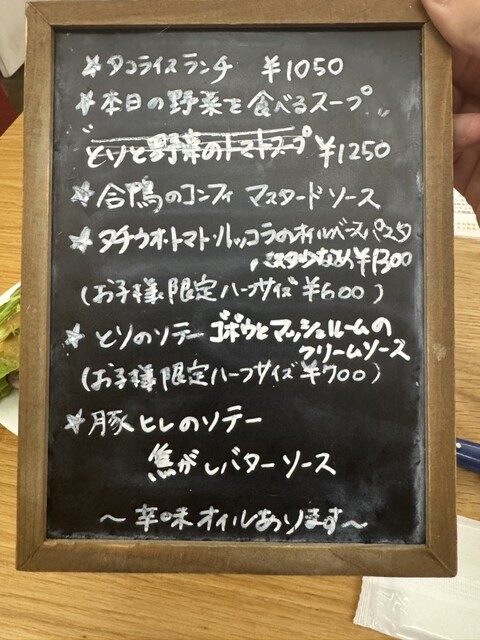 ☆タコライスランチ ¥1050
☆本日の野菜を食べるスープ
"とソと野菜のトマトスープ" ¥1250
☆合鴨のコンフィ マスタードソース
☆タチウオ・トマト・ルッコラのオイルベースパスタ
¥1300
(お子様限定ハーフサイズ ¥600)
☆とソのソテー ゴボウとマッシュルームの
クリームソース
(お子様限定ハーフサイズ ¥700)
☆豚ヒレのソテー
焦がしバターソース
～辛味オイルあります～